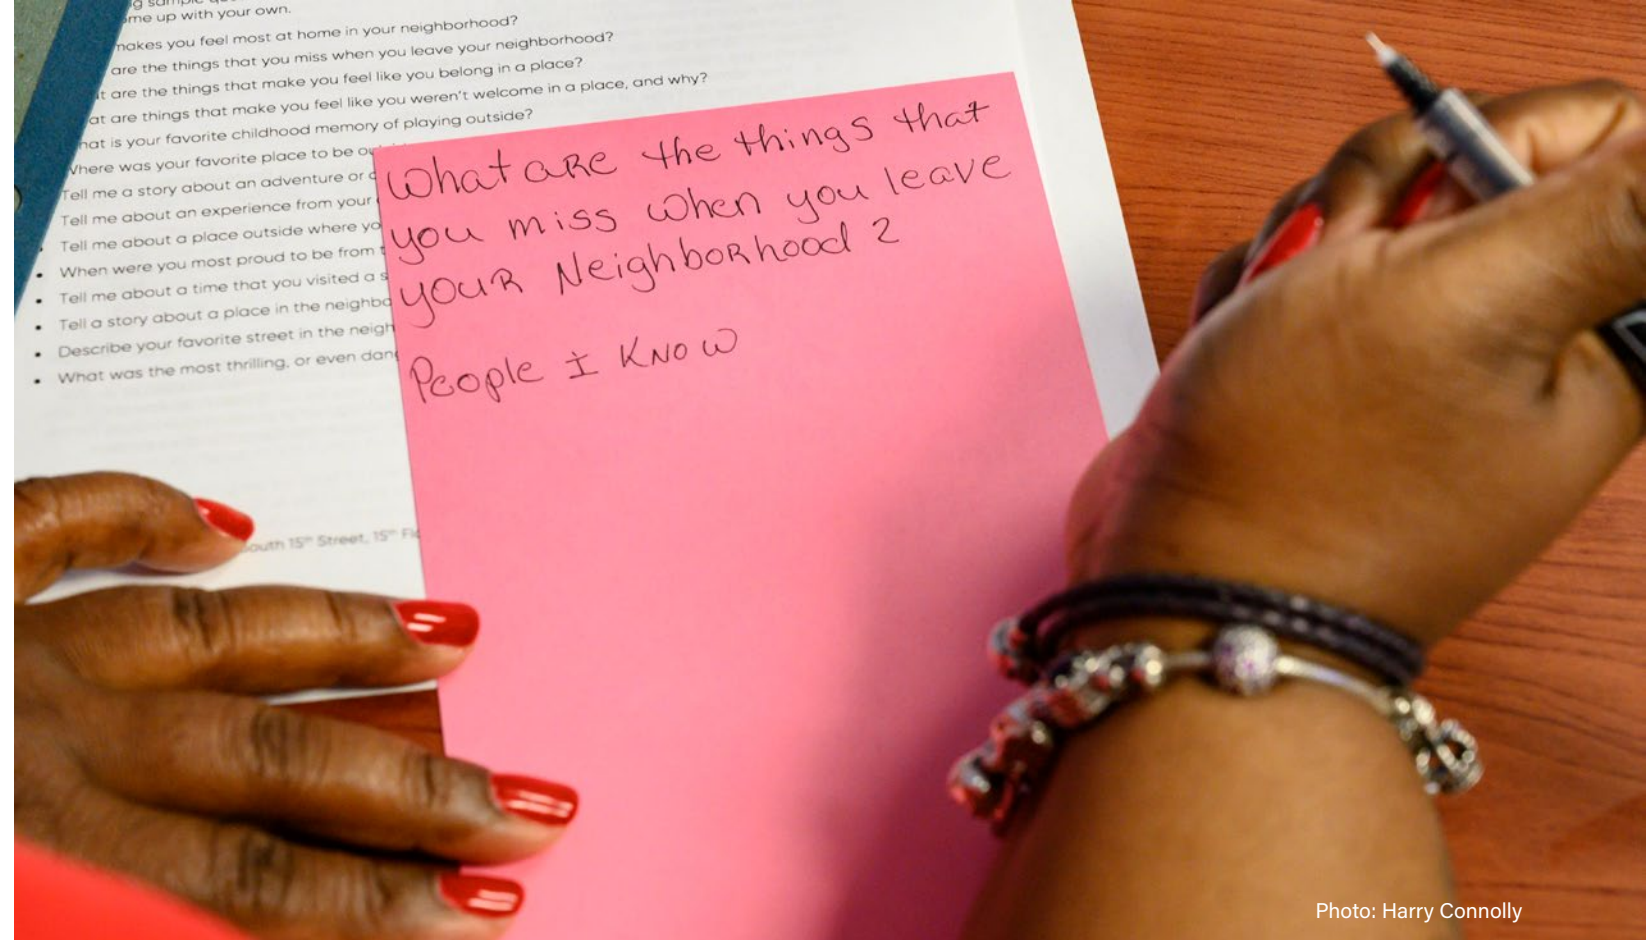 me up with your own.
makes you feel most at home in your neighborhood?
are the things that you miss when you leave your neighborhood?
are the things that make you feel like you belong in a place?
at are things that make you feel like you weren't welcome in a place, and why?
hat is your favorite childhood memory of playing outside?
Where was your favorite place to be
Tell me a story about an adventure or
Tell me about an experience from your
Tell me about a place outside where yo
• When were you most proud to be from
• Tell me about a time that you visited a s
• Tell a story about a place in the neighbo
• Describe your favorite street in the neigh
• What was the most thrilling, or even dan
outh 15th Street, 15th Flo
What aRe the things that
you miss when you leave
youR Neighborhood?
People I KNow
Photo: Harry Connolly